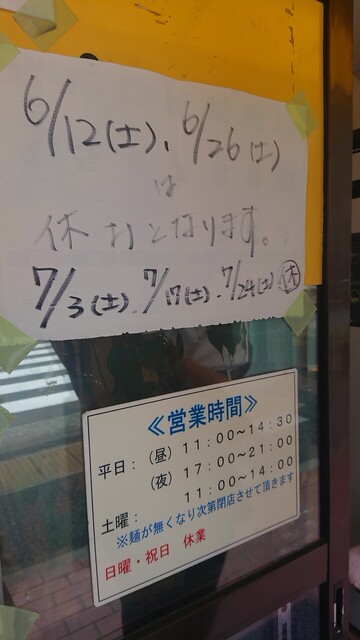 6/12(土)、6/26(土)
は
休みとなります。
7/3(土)、7/17(土)、7/24(土)㊡
≪営業時間≫
平日：（昼）11：00～14：30
（夜）17：00～21：00
土曜：11：00～14：00
※麺が無くなり次第閉店させて頂きます
日曜・祝日 休業